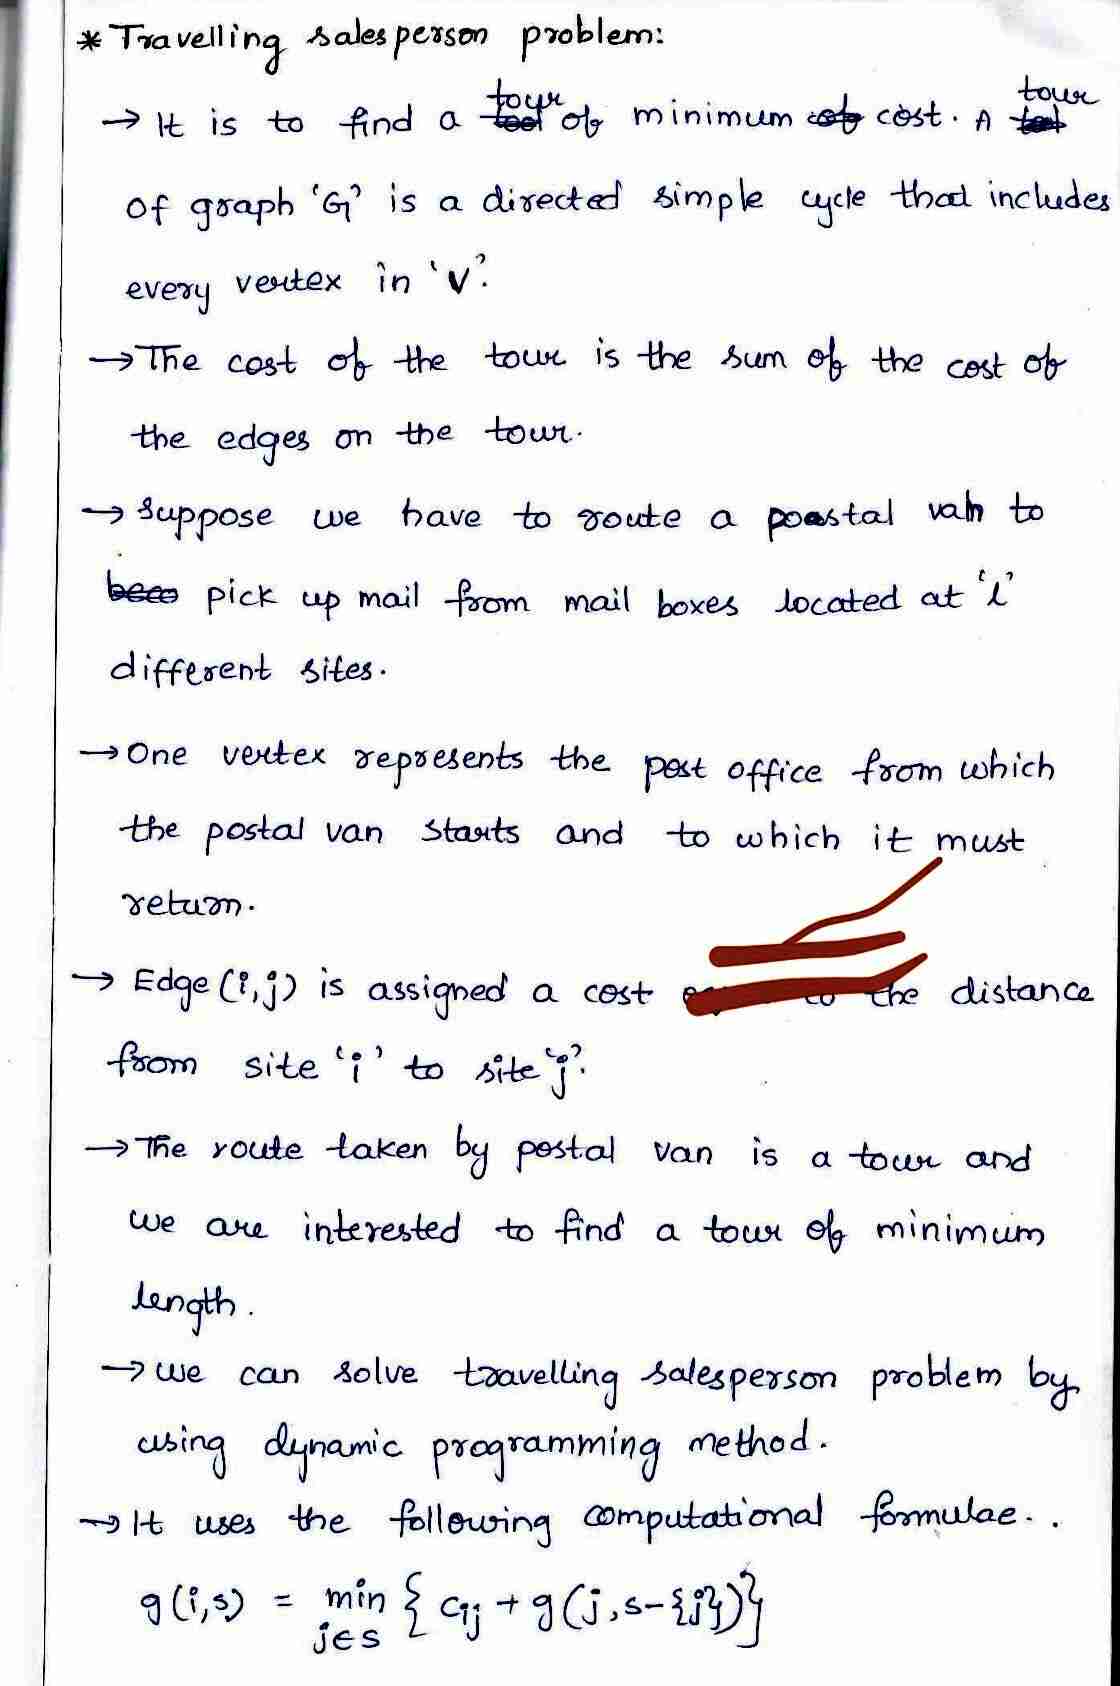 * Travelling salesperson problem:
→ It is to find a tour of minimum cost. A tour
of graph 'G' is a directed simple cycle that includes
every vertex in 'V'.
→ The cost of the tour is the sum of the cost of
the edges on the tour.
→ Suppose we have to route a postal van to
pick up mail from mail boxes located at 'i'
different sites.
→ One vertex represents the post office from which
the postal van starts and to which it must
return.
→ Edge (i,j) is assigned a cost to the distance
from site 'i' to site 'j'.
→ The route taken by postal van is a tour and
we are interested to find a tour of minimum
length.
→ we can solve travelling salesperson problem by
using dynamic programming method.
→ It uses the following computational formulae..
g(i,s) = min { cij + g(j, s-{j})}
j∈s